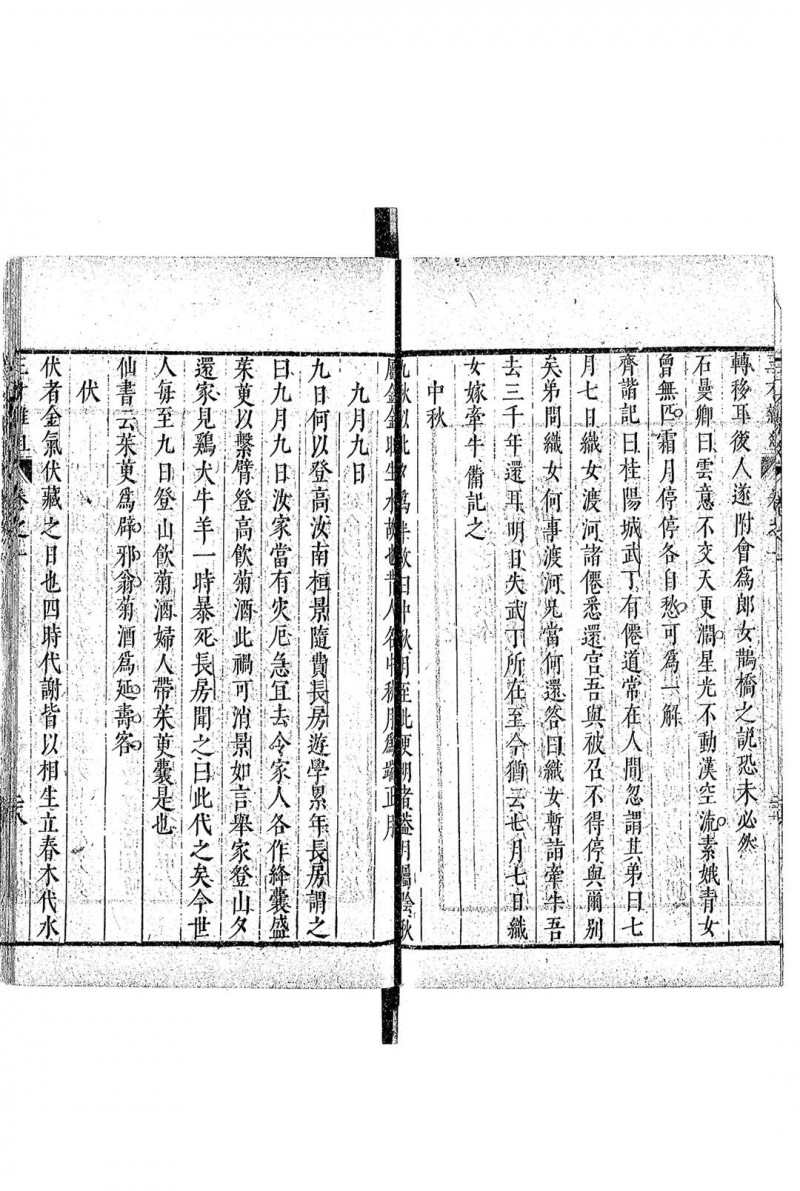 轉移耳後人遂附會為郎女鵲橋之説恐未必然
石曼卿曰雲意不交天更濶星光不動漢空流素娥青女
曾無匹霜月停停各自愁可為一解
齊諧記曰桂陽城武丁有僊道常在人間忽謂其弟曰七
月七日織女渡河諸僊悉還宫吾與被召不得停與爾别
矣弟問織女何事渡河兄當何還答曰織女暫詣牽牛吾
去三千年還耳明日失武丁所在至今猶云七月七日織
女嫁牽牛備記之
中秋
九秋以此夕為半故曰中秋
昔人名中秋月為端正月
九月九日
九日何以登高汝南桓景隨費長房遊學累年長房謂之
曰九月九日汝家當有灾厄急宜去令家人各作絳囊盛
茱萸以繫臂登高飲菊酒此禍可消景如言舉家登山夕
還家見鷄犬牛羊一時暴死長房聞之曰此代之矣今世
人每至九日登山飲菊酒婦人帶茱萸囊是也
仙書云茱萸為辟邪翁菊酒為延壽客
伏
伏者金氣伏藏之日也四時代謝皆以相生立春木代水
卷之一